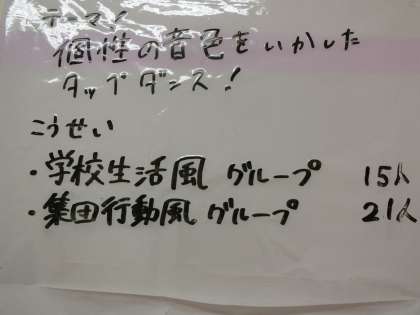 テーマ!
個性の音色をいかした
タップダンス!
こうせい
・学校生活風 グループ 15人
・集団行動風 グループ 21人